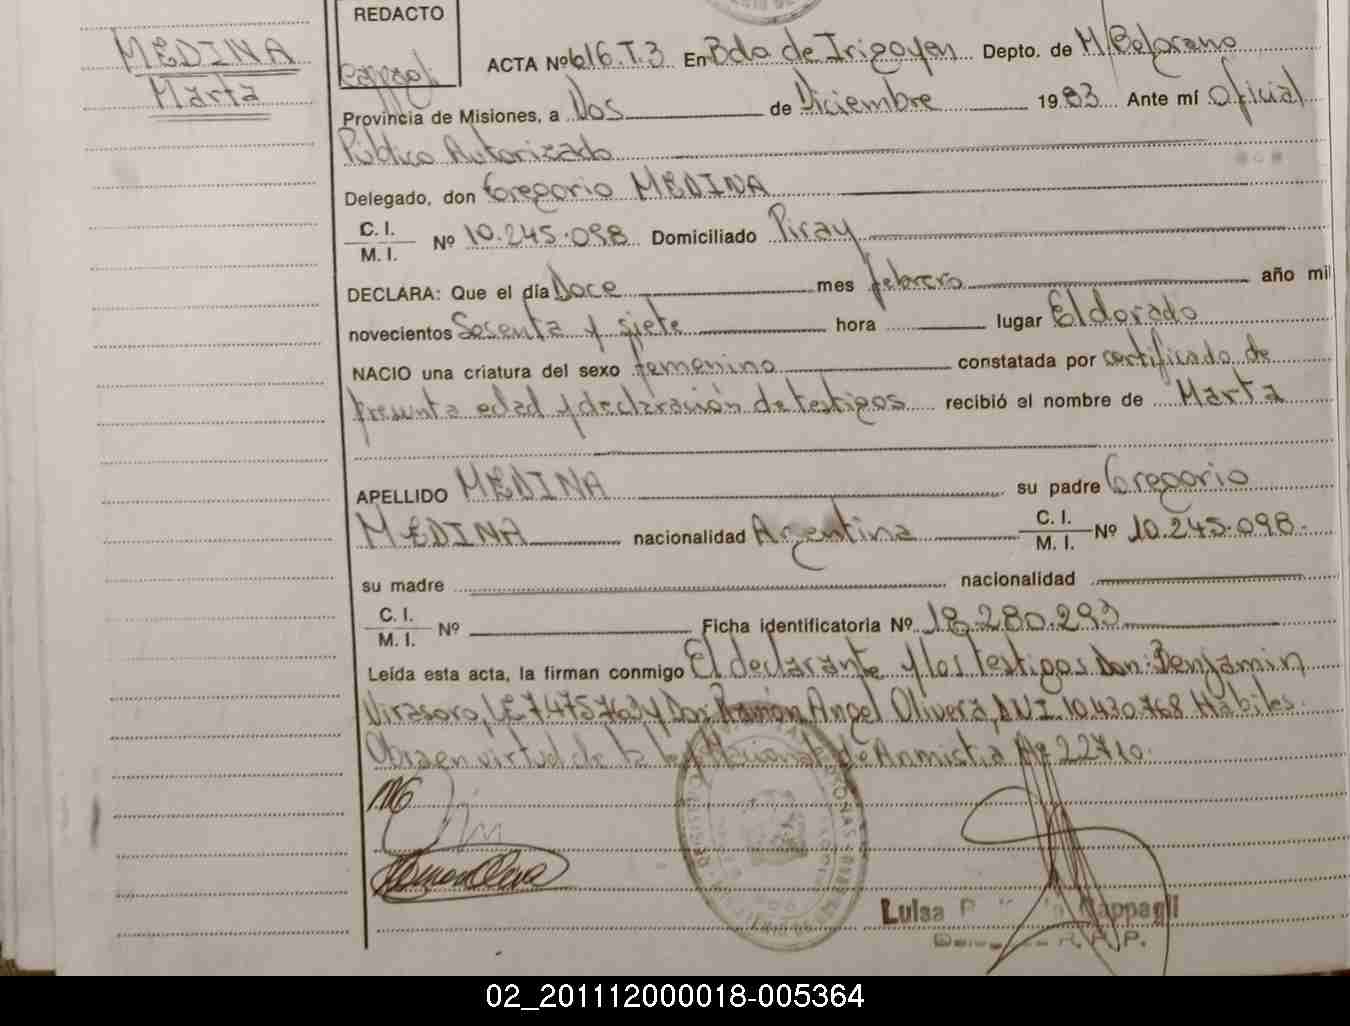 REDACTO
MEDINA
Marta
Cappagli
ACTA Nº 616.T.3 En Bdo de Irigoyen Depto. de M Belgrano
Provincia de Misiones, a Dos de Diciembre 1983 Ante mí Oficial
Público Autorizado
Delegado, don Gregorio MEDINA
C. I.
M. I. Nº 10.245.098 Domiciliado Piray
DECLARA: Que el día Doce mes febrero año mil
novecientos Sesenta y siete hora lugar Eldorado
NACIO una criatura del sexo femenino constatada por certificado de
presunta edad y declaración de testigos recibió el nombre de Marta
APELLIDO MEDINA su padre Gregorio
MEDINA nacionalidad Argentina C. I. M. I. Nº 10.245.098.
su madre nacionalidad
C. I.
M. I. Nº Ficha identificatoria Nº 18.280.293
Leída esta acta, la firman conmigo El declarante y los testigos Don: Benjamin
Virasoro, LE 7475763 y Don Ramón Angel Olivera, D.N.I. 10.430.768 Hábiles.
Obra en virtud de la ley Nacional de Anmistia Nº 22710.
Luisa Cappagli
R. P.
02_201112000018-005364